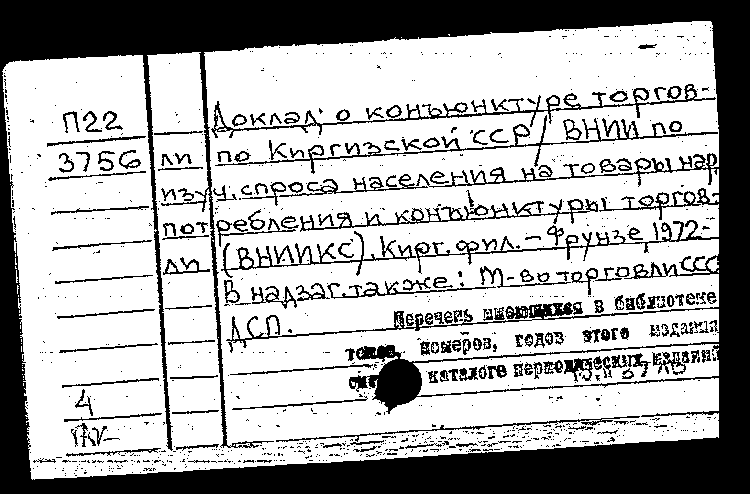 П22
3756
Доклад; о конъюнктуре торгов-
ли по Киргизской ССР / ВНИИ по
изуч. спроса населения на товары нар.
потребления и конъюнктуры торгов-
ли (ВНИИКС). Кирг. фил. – Фрунзе, 1972-
В надзаг. также: М-во торговли СССР
ДСП.
Перечень имеющихся в библиотеке
томов, номеров, годов этого издания
каталоге периодических изданий
4